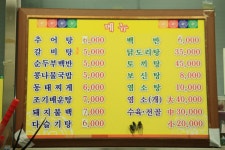 메뉴
추어탕 6,000
갈비탕 5,000
순두부백반 5,000
콩나물국밥 5,000
동태찌개 6,000
조기매운탕 7,000
돼지불백 7,000
다슬기탕 6,000
백반 6,000
닭도리탕 35,000
토끼탕 45,000
보신탕 8,000
염소탕 10,000
염소(개) 大40,000
수육·전골 中30,000
小20,000